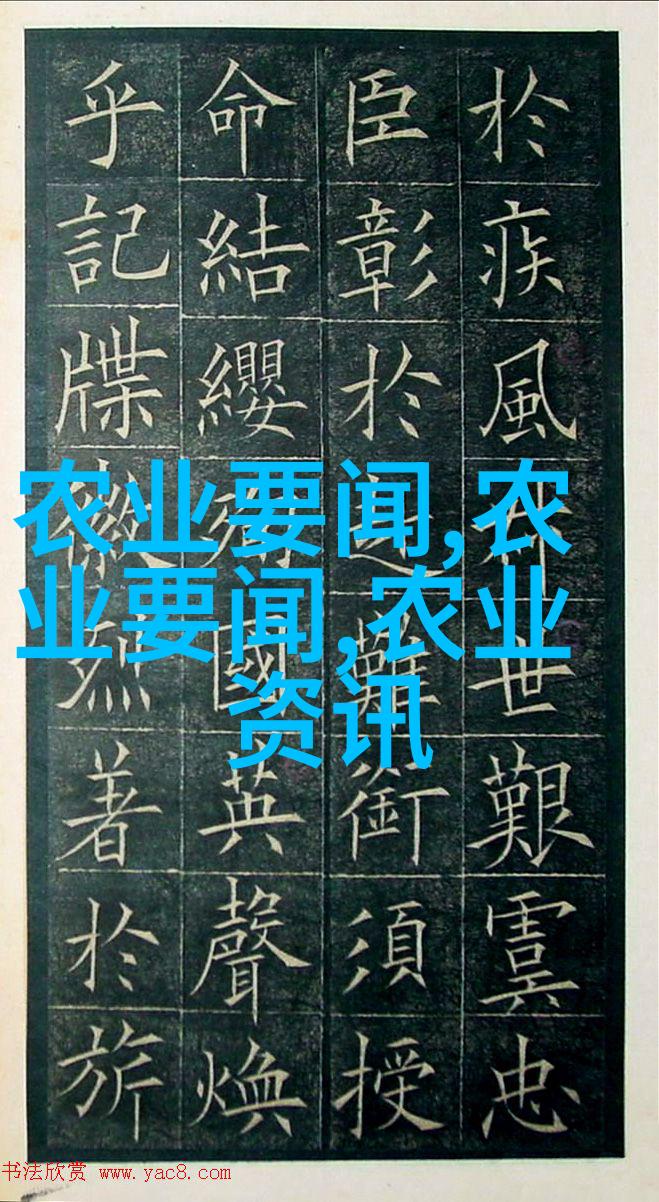 於疾風叔世艱虞忠
臣彰於赴難銜須授
命結纓殉國英聲煥
乎記牒徽烈著於旂
农业要闻,农
业要闻,农业
资讯
书法欣赏 www.yac8.com